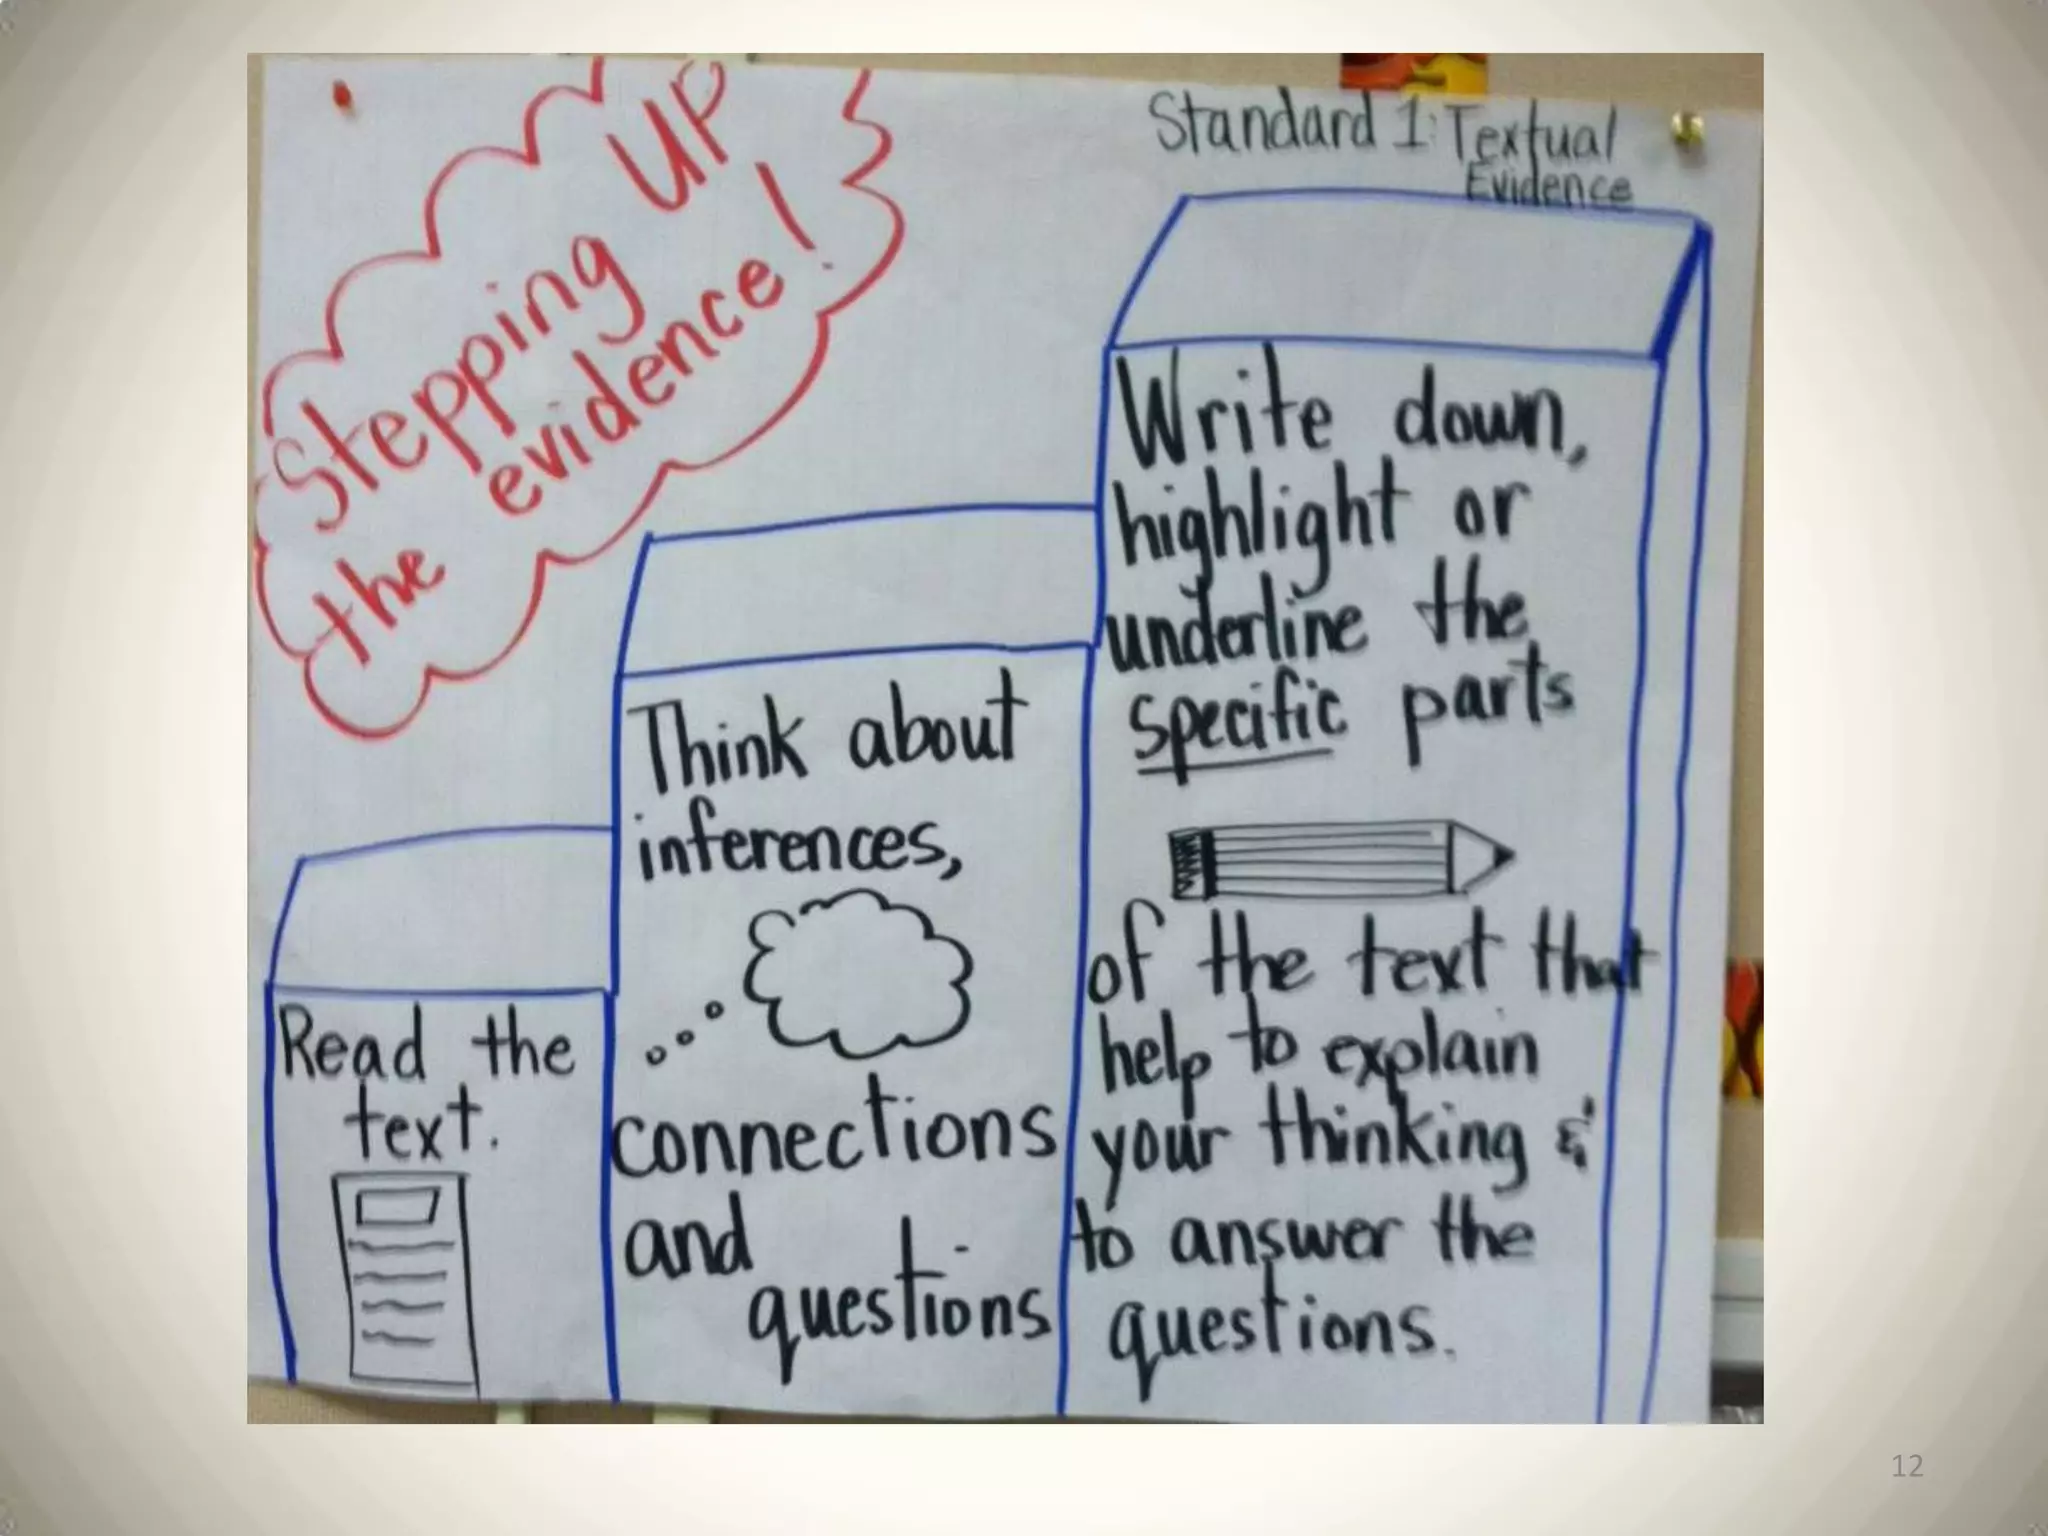 Stepping UP
the evidence!
Standard 1: Textual
Evidence
Read the
text.
Think about
inferences,
connections
and
questions
Write down,
highlight or
underline the
specific parts
of the text that
help to explain
your thinking &
to answer the
questions.
12